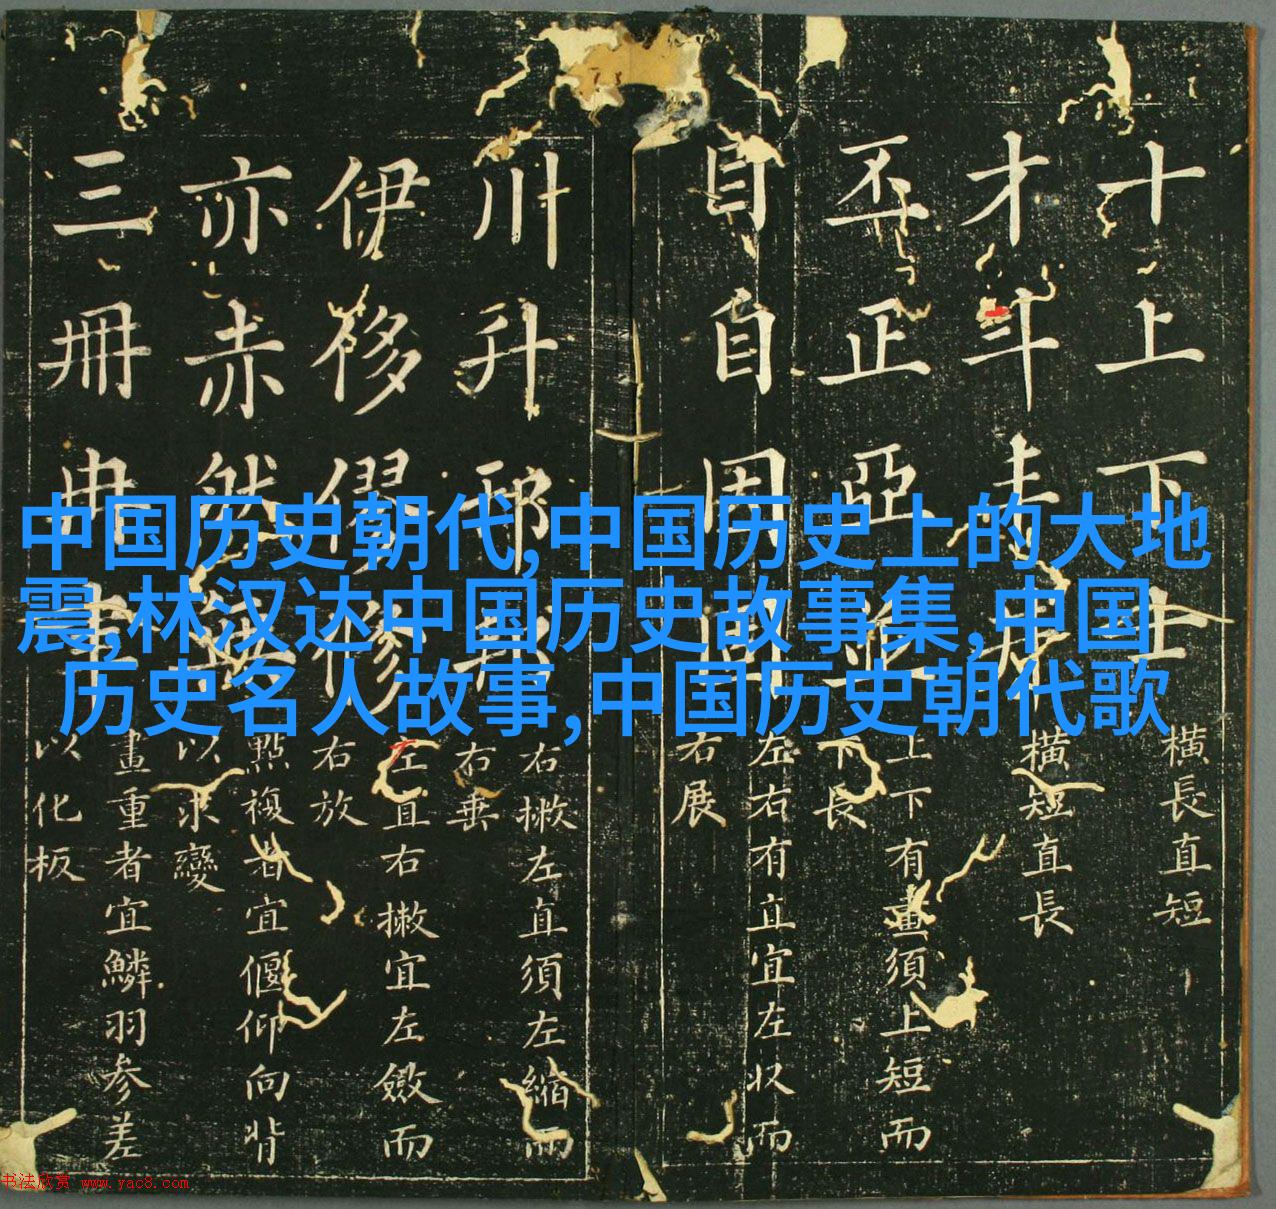 中国历史朝代,中国历史上的大地
震,林汉达中国历史故事集,中国
历史名人故事,中国历史朝代歌
十上下
橫長直短
才斗
橫短直長
丕正亞並
上下有畫須上短而
下長
目自因固
左右有直宜左收而
右展
川升邪
右撇左直須左縮而
右垂
伊侈僇修
左直右撇宜左斂而
右放
亦赤然
點複者宜偃仰向背
以求變
三冊冉
畫重者宜鱗羽參差
以化板
书法欣赏 www.yac8.com